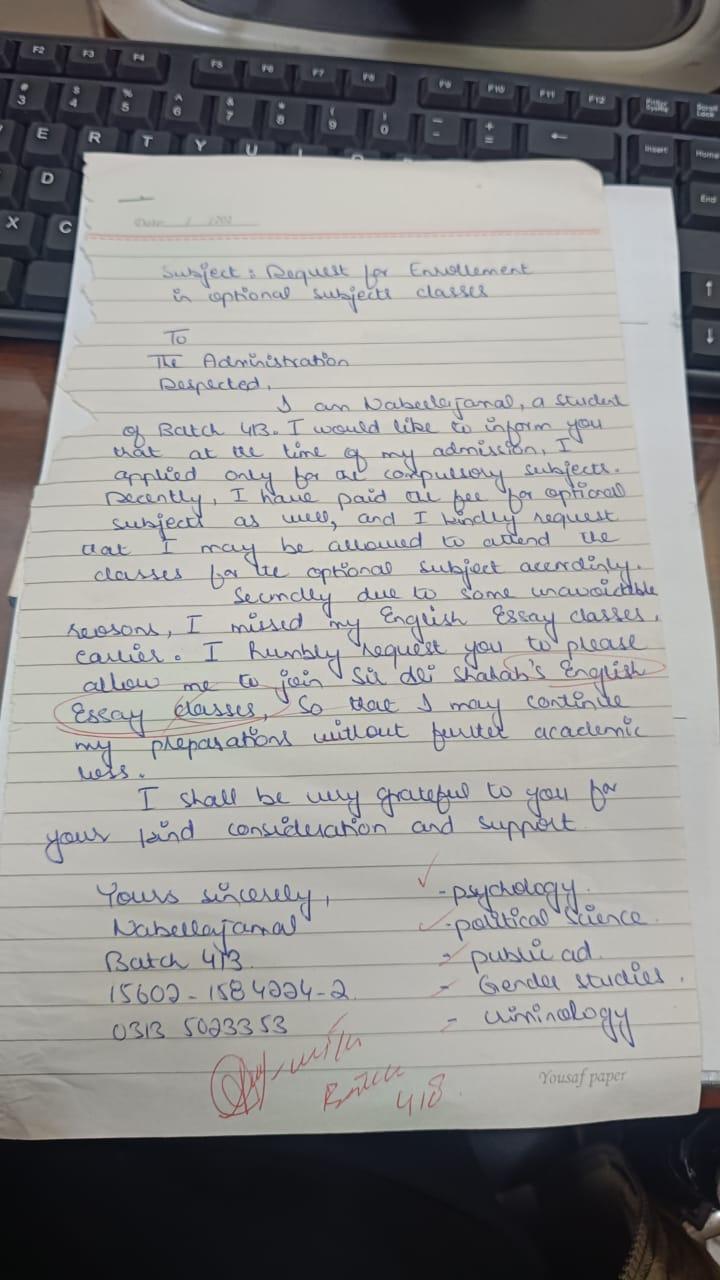 Date: / /202
Subject: Request for Enrollement
in optional subjects classes
To
The Administration
Respected,
I am Nabeelajamal, a student
of Batch 413. I would like to inform you
that at the time of my admission, I
applied only for the compulsory subjects.
Recently, I have paid the fee for optional
subject as well, and I kindly request
that I may be allowed to attend the
classes for the optional subject accordinly.
Secondly due to some unavoidable
reasons, I missed my English Essay classes,
earlier. I humbly request you to please
allow me to join Sir Shahab's English
Essay classes, So that I may continue
my preparations without further academic
loss.
I shall be very grateful to you for
your kind consideration and support
Yours sincerely,
Nabeelajamal
Batch 413
15602-1584224-2
0313 5023353
-psychology.
-political Science.
- public ad.
- Gender studies.
- Criminology
with
Batch
418
Yousaf paper